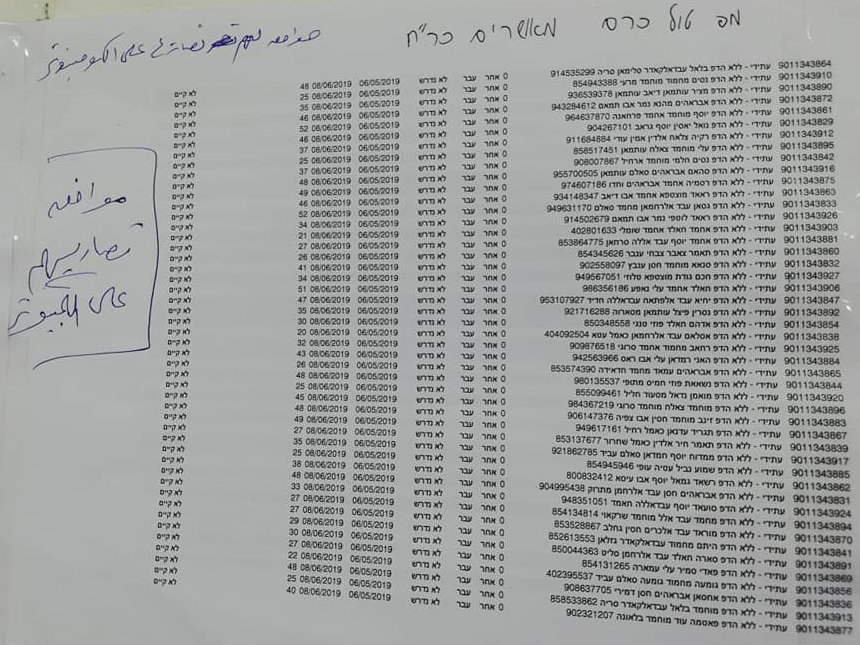 מפ טול כרם מאשרים כר"ח
موافقه لهم تصاريح على الكومبيوتر
9011343864 עתידי - ללא הדפ בלאל עבדאלקאדר סלימאן סריה 914535299 0 אחר עבר לא נדרש 06/05/2019 08/06/2019 48 לא קיים
9011343910 עתידי - ללא הדפ נסים מחמוד מוחמד מרעי 854943388 0 אחר עבר לא נדרש 06/05/2019 08/06/2019 25 לא קיים
9011343890 עתידי - ללא הדפ מציר עותמאן דיאב עותמאן 936539378 0 אחר עבר לא נדרש 06/05/2019 08/06/2019 35 לא קיים
9011343872 עתידי - ללא הדפ אבראהים מהנא נמר אבו תמאם 943284612 0 אחר עבר לא נדרש 06/05/2019 08/06/2019 46 לא קיים
9011343861 עתידי - ללא הדפ יוסף מוחמד אחמד פרחאנה 964637870 0 אחר עבר לא נדרש 06/05/2019 08/06/2019 52 לא קיים
9011343829 עתידי - ללא הדפ נואל יאסין יוסף גראב 904267101 0 אחר עבר לא נדרש 06/05/2019 08/06/2019 46 לא קיים
9011343912 עתידי - ללא הדפ רקיה צלאח אלדין אמין עודי 911684884 0 אחר עבר לא נדרש 06/05/2019 08/06/2019 37 לא קיים
9011343895 עתידי - ללא הדפ עלי מוחמד צאלח עותמאן 858517451 0 אחר עבר לא נדרש 06/05/2019 08/06/2019 25 לא קיים
9011343842 עתידי - ללא הדפ נסים חלמי מוחמד ארחיל 908007867 0 אחר עבר לא נדרש 06/05/2019 08/06/2019 37 לא קיים
9011343916 עתידי - ללא הדפ סהאם אבראהים סאלם עותמאן 955700505 0 אחר עבר לא נדרש 06/05/2019 08/06/2019 48 לא קיים
9011343875 עתידי - ללא הדפ רסמיה אחמד אבראהים וחדו 974607186 0 אחר עבר לא נדרש 06/05/2019 08/06/2019 49 לא קיים
9011343863 עתידי - ללא הדפ ראאד מוצטפא אחמד אבו דיאב 934148347 0 אחר עבר לא נדרש 06/05/2019 08/06/2019 46 לא קיים
9011343833 עתידי - ללא הדפ גסאן עבד אלרחמאן מחמד סאלם 949631170 0 אחר עבר לא נדרש 06/05/2019 08/06/2019 52 לא קיים
9011343926 עתידי - ללא הדפ ראאד לוטפי נמר אבו תמאם 914502679 0 אחר עבר לא נדרש 06/05/2019 08/06/2019 34 לא קיים
9011343903 עתידי - ללא הדפ אחמד חאלד אחמד שומלי 402801633 0 אחר עבר לא נדרש 06/05/2019 08/06/2019 21 לא קיים
9011343881 עתידי - ללא הדפ אחמד יוסף עבד אללה סרחאן 853864775 0 אחר עבר לא נדרש 06/05/2019 08/06/2019 27 לא קיים
9011343860 עתידי - ללא הדפ תאמר צאבר צבחי ענבר 854345626 0 אחר עבר לא נדרש 06/05/2019 08/06/2019 26 לא קיים
9011343832 עתידי - ללא הדפ סנאא מוחמד חסן ענבץ 902558097 0 אחר עבר לא נדרש 06/05/2019 08/06/2019 41 לא קיים
9011343927 עתידי - ללא הדפ חכם גודת מוצטפא סלוזי 949567051 0 אחר עבר לא נדרש 06/05/2019 08/06/2019 34 לא קיים
9011343906 עתידי - ללא הדפ חאלד אחמד עלי נאפע 986356186 0 אחר עבר לא נדרש 06/05/2019 08/06/2019 51 לא קיים
9011343847 עתידי - ללא הדפ יחיא עבד אלפתאח עבדאללה חדיד 953107927 0 אחר עבר לא נדרש 06/05/2019 08/06/2019 47 לא קיים
9011343892 עתידי - ללא הדפ נסרין פיצל עותמאן מסארוה 921716288 0 אחר עבר לא נדרש 06/05/2019 08/06/2019 35 לא קיים
9011343854 עתידי - ללא הדפ אדהם חאלד פוזי סנגי 850348558 0 אחר עבר לא נדרש 06/05/2019 08/06/2019 30 לא קיים
9011343838 עתידי - ללא הדפ אסלאם עבד אלרחמאן כאמל עטא 404092504 0 אחר עבר לא נדרש 06/05/2019 08/06/2019 20 לא קיים
9011343925 עתידי - ללא הדפ רחאב מחמוד אחמד סרוגי 909876518 0 אחר עבר לא נדרש 06/05/2019 08/06/2019 32 לא קיים
9011343884 עתידי - ללא הדפ האני רמדאן עלי אבו ראס 942563966 0 אחר עבר לא נדרש 06/05/2019 08/06/2019 43 לא קיים
9011343865 עתידי - ללא הדפ אבראהים עמאד מחמד חדאידה 853574390 0 אחר עבר לא נדרש 06/05/2019 08/06/2019 26 לא קיים
9011343844 עתידי - ללא הדפ נשאאת פוזי חמיס מתופי 980135537 0 אחר עבר לא נדרש 06/05/2019 08/06/2019 48 לא קיים
9011343920 עתידי - ללא הדפ מואמן נדאל מסעוד חליל 855099461 0 אחר עבר לא נדרש 06/05/2019 08/06/2019 25 לא קיים
9011343896 עתידי - ללא הדפ מוחמד צאלח מוחמד סרוגי 984367219 0 אחר עבר לא נדרש 06/05/2019 08/06/2019 45 לא קיים
9011343883 עתידי - ללא הדפ זינב מוחמד חסין אבו צפיה 906147376 0 אחר עבר לא נדרש 06/05/2019 08/06/2019 48 לא קיים
9011343867 עתידי - ללא הדפ תגריד עדנאן כאמל רחיל 949617161 0 אחר עבר לא נדרש 06/05/2019 08/06/2019 49 לא קיים
9011343839 עתידי - ללא הדפ תאמר חיר אלדין כאמל שחרור 853137677 0 אחר עבר לא נדרש 06/05/2019 08/06/2019 27 לא קיים
9011343917 עתידי - ללא הדפ ממדוח יוסף חמדאן סאלם עביד 921862785 0 אחר עבר לא נדרש 06/05/2019 08/06/2019 35 לא קיים
9011343885 עתידי - ללא הדפ שמוע נביל עטיה עופי 854945946 0 אחר עבר לא נדרש 06/05/2019 08/06/2019 25 לא קיים
9011343862 עתידי - ללא הדפ רשאד גמאל יוסף אבו עיסא 800832412 0 אחר עבר לא נדרש 06/05/2019 08/06/2019 38 לא קיים
9011343831 עתידי - ללא הדפ אבראהים חסן עבד אלרחמן מתרוק 904995438 0 אחר עבר לא נדרש 06/05/2019 08/06/2019 48 לא קיים
9011343924 עתידי - ללא הדפ סועאד יוסף עבדאללה חאמד 948351051 0 אחר עבר לא נדרש 06/05/2019 08/06/2019 33 לא קיים
9011343894 עתידי - ללא הדפ מחמד עבד אלל מוחמד שרקאוי 854134814 0 אחר עבר לא נדרש 06/05/2019 08/06/2019 27 לא קיים
9011343870 עתידי - ללא הדפ מוראד עבד אלכרים חסין גחלב 853528867 0 אחר עבר לא נדרש 06/05/2019 08/06/2019 27 לא קיים
9011343841 עתידי - ללא הדפ היתם מחמוד עבדאלקאדר גזלאן 852613553 0 אחר עבר לא נדרש 06/05/2019 08/06/2019 29 לא קיים
9011343891 עתידי - ללא הדפ סארה חאלד עבד אלרחמן סליט 850044363 0 אחר עבר לא נדרש 06/05/2019 08/06/2019 30 לא קיים
9011343869 עתידי - ללא הדפ פאדי סמיר עלי עמארה 854131265 0 אחר עבר לא נדרש 06/05/2019 08/06/2019 27 לא קיים
9011343856 עתידי - ללא הדפ גומעה מחמוד גומעה סאלם עביד 402395537 0 אחר עבר לא נדרש 06/05/2019 08/06/2019 22 לא קיים
9011343836 עתידי - ללא הדפ אחסאן אבראהים חסן דמירי 908637705 0 אחר עבר לא נדרש 06/05/2019 08/06/2019 48 לא קיים
9011343913 עתידי - ללא הדפ מוחמד בלאל עבדאלקאדר סריה 858533862 0 אחר עבר לא נדרש 06/05/2019 08/06/2019 25 לא קיים
9011343877 עתידי - ללא הדפ פאטמה עוד מוחמד בלאונה 902321207 0 אחר עבר לא נדרש 06/05/2019 08/06/2019 40 לא קיים
موافقه
تصاريحهم
على الكمبيوتر